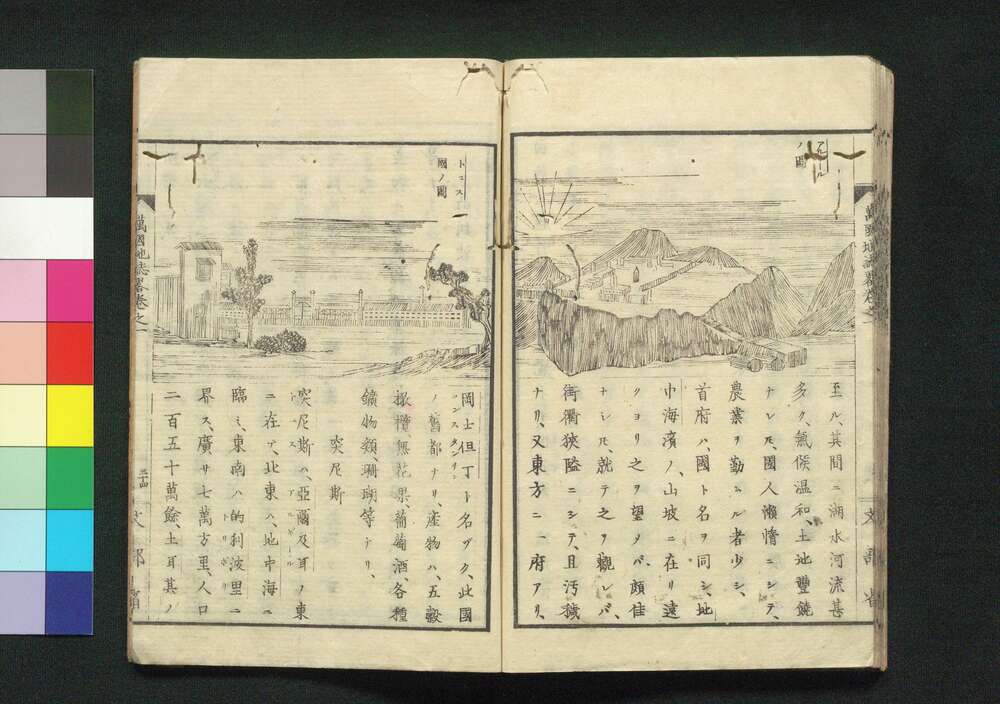 アルゼール
ノ圖
至ル、其間ニ湖水河流甚
多ク、氣候温和、土地豐饒
ナレ𪜈、國人懶惰ニシテ、
農業ヲ勤ムル者少シ、
首府ハ、國ト名ヲ同シ、地
中海濱ノ、山坡ニ在リ遠
クヨリ之ヲ望メバ、頗佳
ナレ𪜈、就テ之ヲ觀レバ、
街衢狹隘ニシテ、且汚穢
ナリ、又東方ニ一府アリ、
萬國地誌畧巻之一
文部省
トユニス
國ノ圖
岡士但丁ト名ヅク、此國
コンスタンチン
ノ舊都ナリ、産物ハ、五穀
橄欖、無花果、葡萄酒、各種
鑛物類、珊瑚等ナリ、
突尼斯
突尼斯ハ、亞爾及耳ノ東
ニ在テ、北東ハ、地中海ニ
臨ミ、東南ハ的利波里ニ
トリポリ
界ス、廣サ七萬方里、人口
二百五十萬餘、土耳其ノ
萬國地誌畧巻之一
三十四
文部省